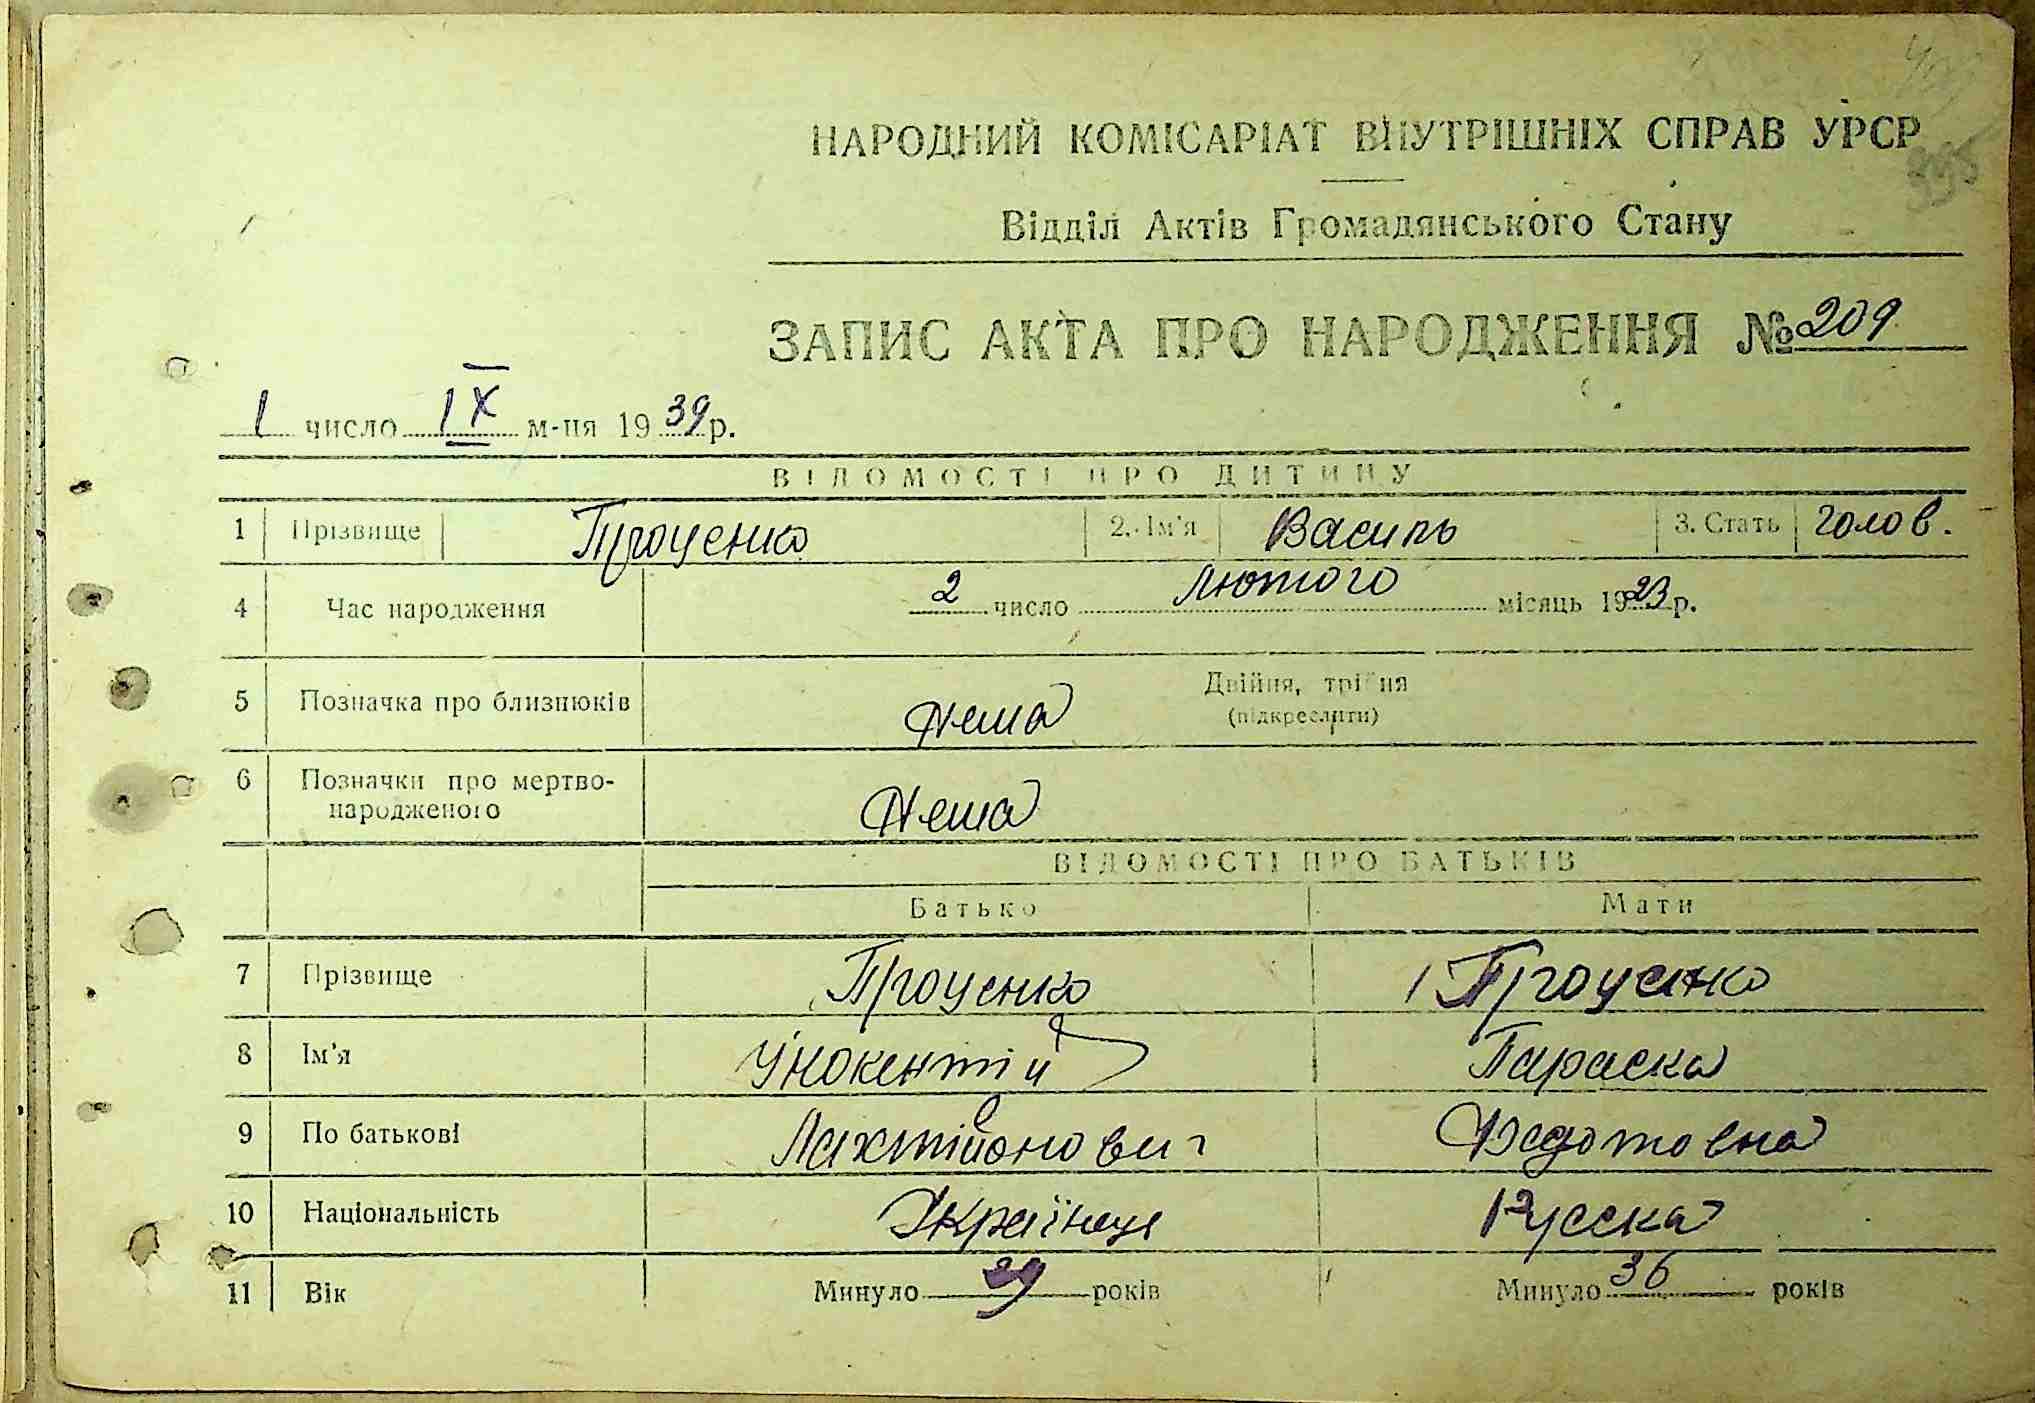 НАРОДНИЙ КОМІСАРІАТ ВНУТРІШНІХ СПРАВ УРСР
395
Відділ Актів Громадянського Стану
ЗАПИС АКТА ПРО НАРОДЖЕННЯ № 209
1 число IX м-ця 1939 р.
ВІДОМОСТІ ПРО ДИТИНУ
1 Прізвище Проценко 2. Ім'я Василь 3. Стать Голов.
4 Час народження 2 число лютого місяць 1923 р.
5 Позначка про близнюків Нема Двійня, трійня
(підкреслити)
6 Позначки про мертво-
народженого Нема
ВІДОМОСТІ ПРО БАТЬКІВ
Батько Мати
7 Прізвище Проценко Проценко
8 Ім'я Інокентій Параска
9 По батькові Лахтійонович Федотовна
10 Національність Українець Русска
11 Вік Минуло 29 років Минуло 36 років